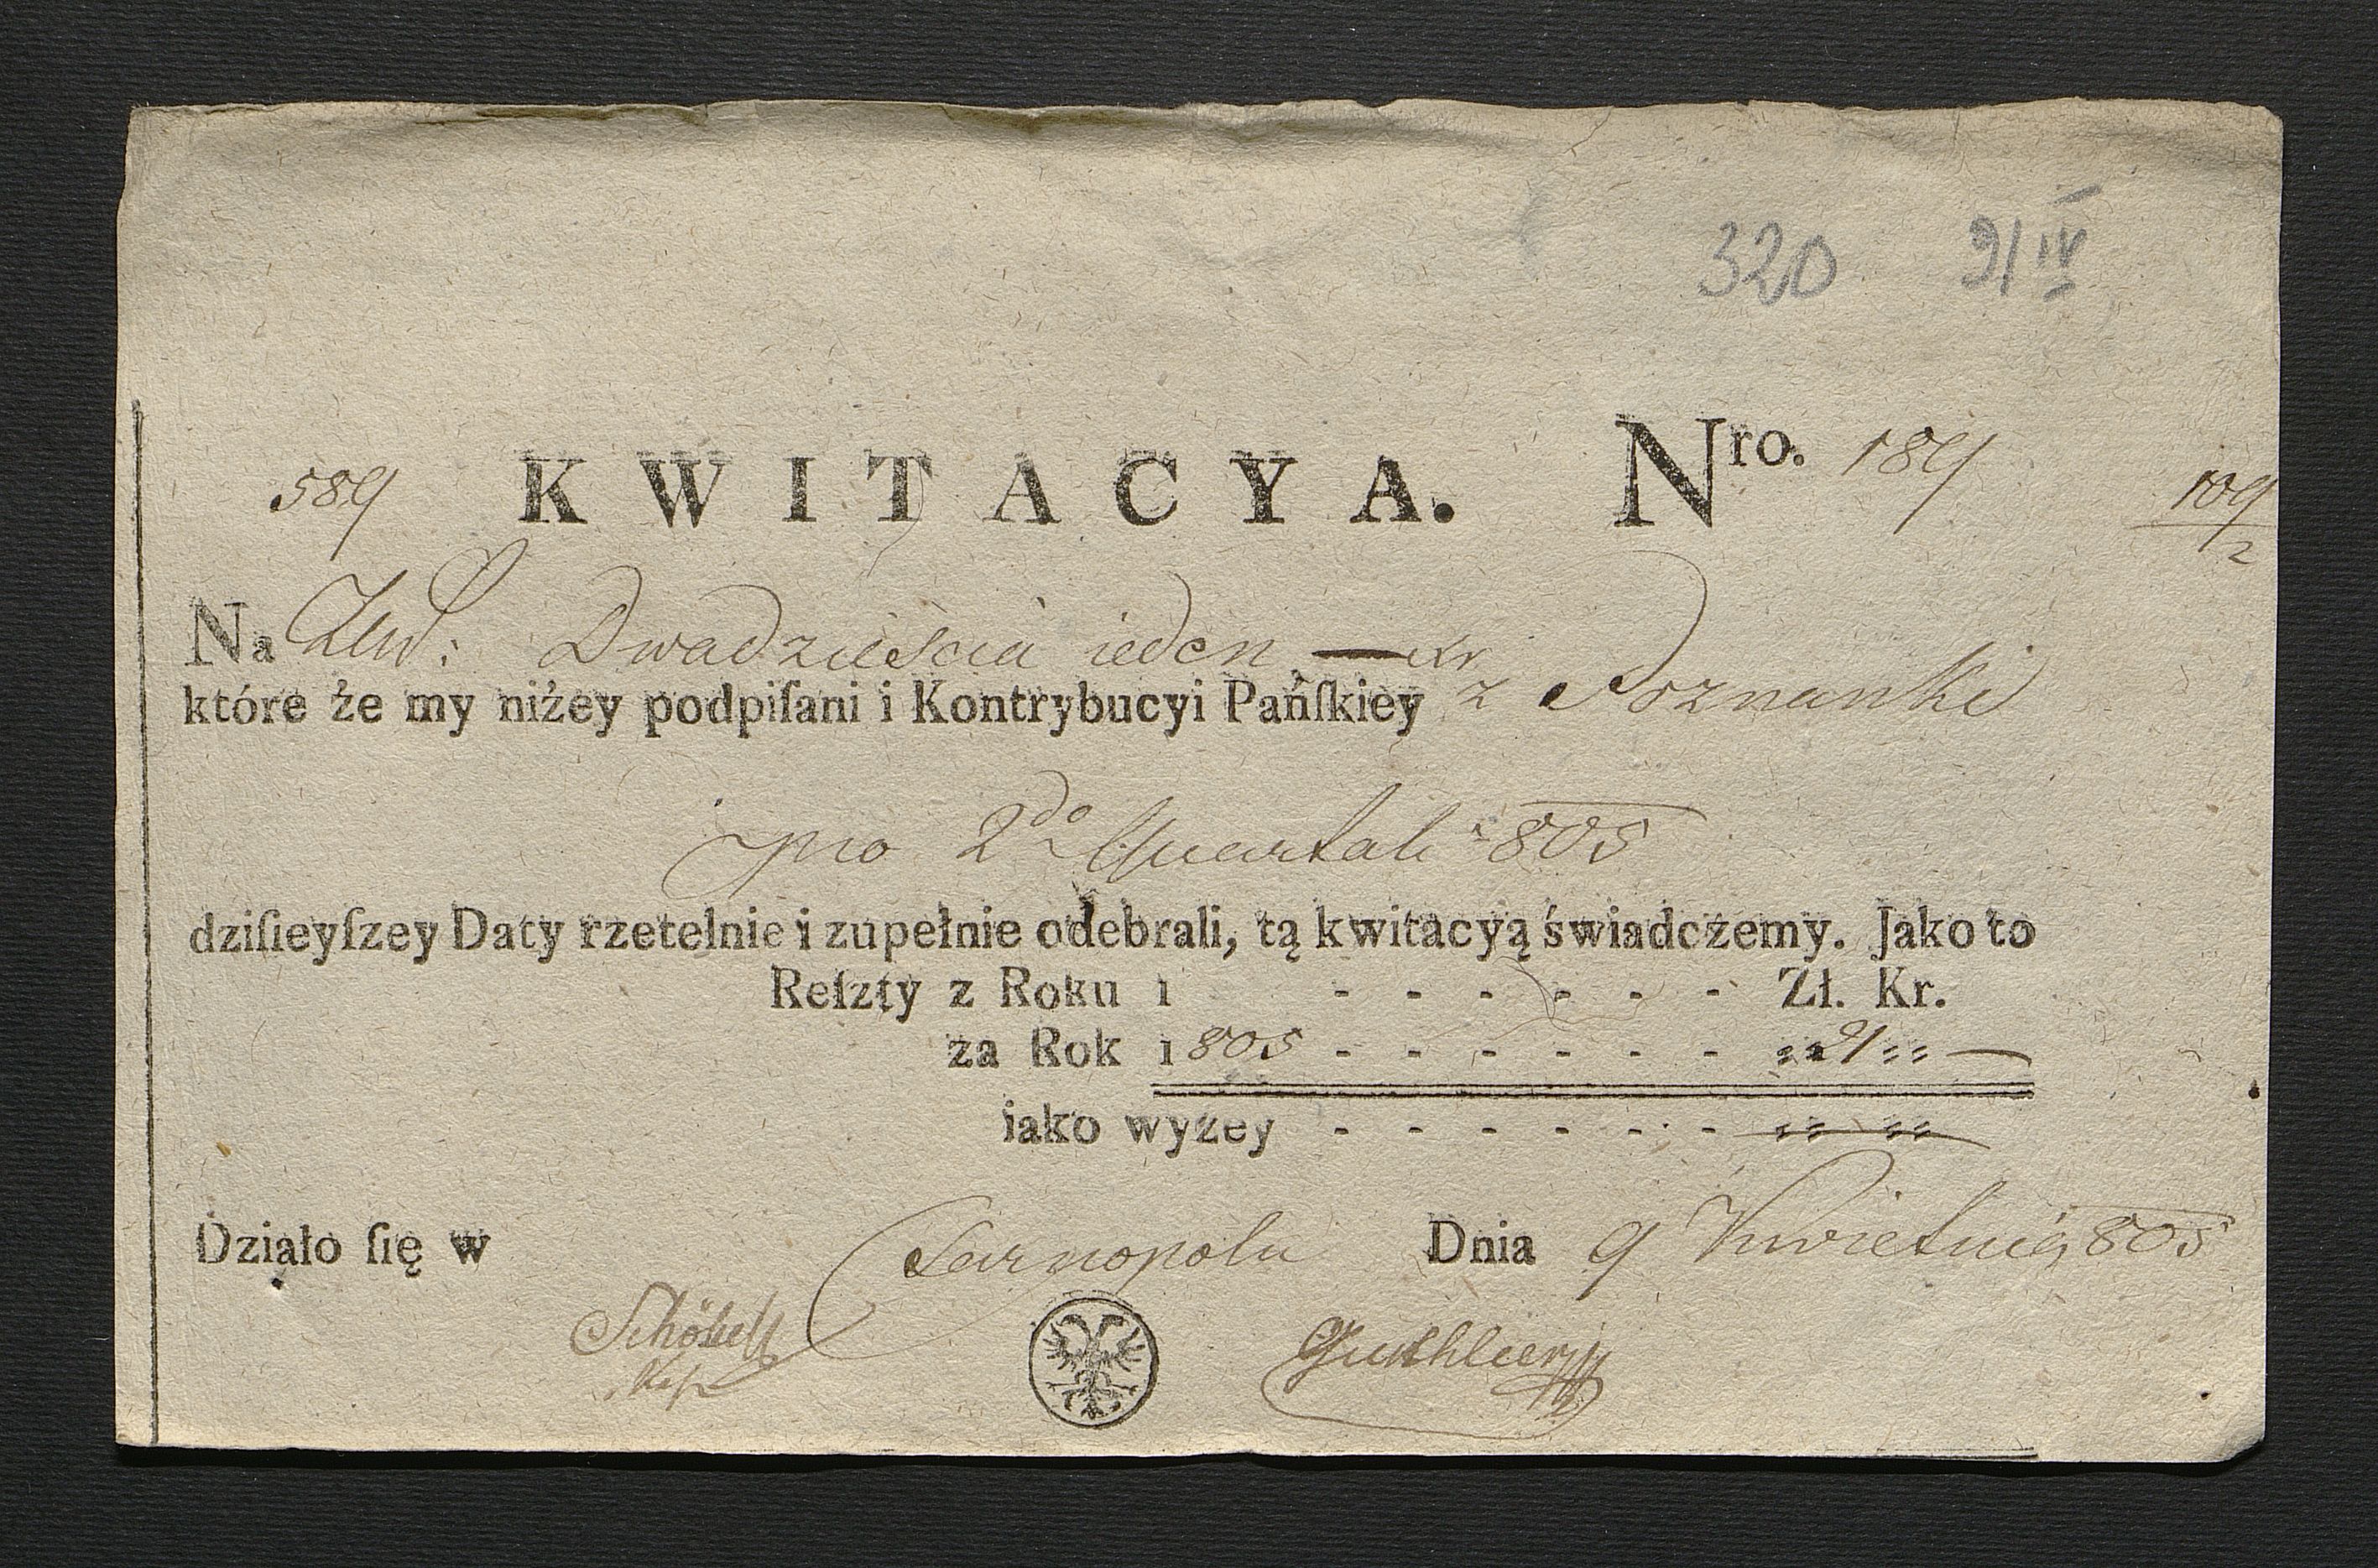 320 9/IV
589 KWITACYA. Nro. 189 109/2
Na Dwadzieścia ieden — Xr
które że my niżey podpiſani i Kontrybucyi Pańſkiey z Poznanki
pro 2do Quartali 805
dziſieyſzey Daty rzetelnie i zupełnie odebrali, tą kwitacyą świadczemy. Jako to
Reſzty z Roku 1 - - - - - - Zł. Kr.
za Rok 1805 - - - - - - 21 —
iako wyżey - - - - - -
Działo ſię w Tarnopolu Dnia 9 Kwietnia 805